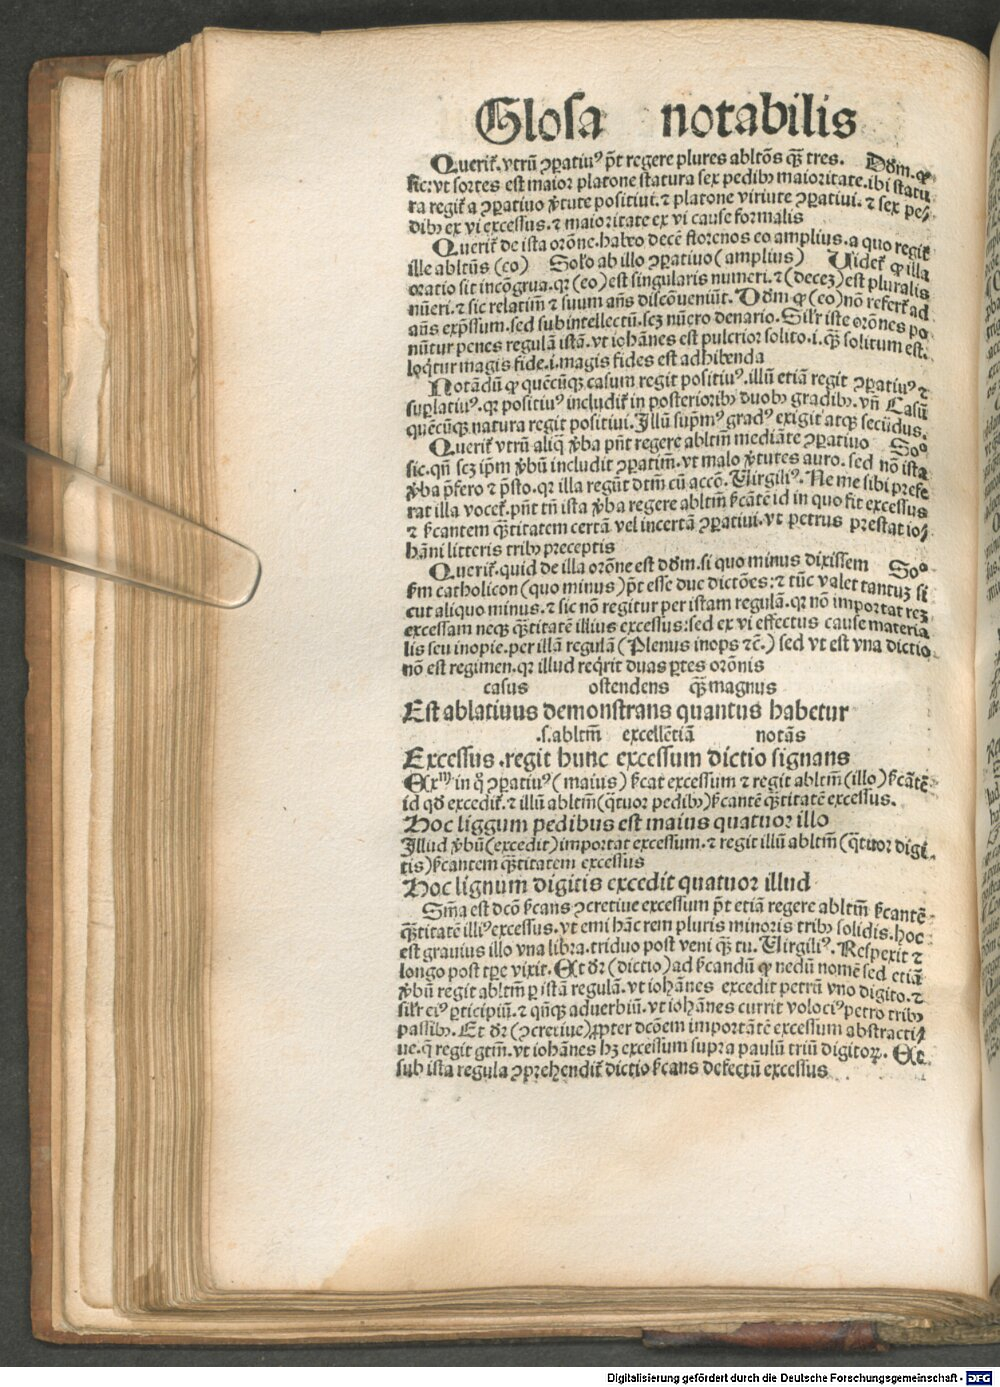 Glosa notabilis
Querit᷑. vtrū ꝯꝑatiuꝰ p̄t regere plures abltōs qȝ̄ tres. Dōm. ꝙ
sic: vt sortes est maior platone statura sex pedibꝫ maioritate. ibi statu
ra regit᷑ a ꝯꝑatiuo v̓tute positiui. ⁊ platone virtute ꝯꝑatiui. ⁊ sex pe⸗
dibꝫ ex vi excessus. ⁊ maioritate ex vi cause formalis
Querit᷑ de ista orōne. habeo decē florenos eo amplius. a quo regit᷑
ille abltūs (eo) Solo ab illo ꝯꝑatiuo (amplius) Uidet᷑ ꝙ illa
oratio sit incōgrua. qꝛ (eo) est singularis numeri. ⁊ (deceꝫ) est pluralis
nūeri. ⁊ sic relatiūm ⁊ suum an̄s discōueniūt. Dōm ꝙ (eo) nō refert᷑ ad
an̄s exp̄ssum. sed subintellectū. scꝫ nūero denario. Silr iste orōnes po
nūtur penes regulā istā. vt iohānes est pulcrior solito. i. qȝ̄ solitum est.
loq̄tur magis fide. i. magis fides est adhibenda
Notādū ꝙ quēcūqꝫ casum regit positiuꝰ. illū etiā regit ꝯꝑatiuꝰ ⁊
suꝑlatiuꝰ. qꝛ positiuꝰ includit᷑ in posterioribꝫ duobꝫ gradibꝫ. vn̄ Casū
quēcūqꝫ natura regit positiui. Illū sup̄mꝰ gradꝰ exigit atqꝫ secūdus.
Querit᷑ vtrū aliq̄ v̓ba pn̄t regere abltm̄ mediāte ꝯꝑatiuo Soº
sic. qn̄ scꝫ ip̄m v̓bū includit ꝯꝑatim̄. vt malo v̓tutes auro. sed nō ista
v̓ba p̄fero ⁊ p̄sto. qꝛ illa regūt dtm̄ cū accō. Virgiliꝰ. Ne me sibi prefe
rat illa vocet᷑. pn̄t tn̄ ista v̓ba regere abltm̄ ſ̓cātē id in quo fit excessus
⁊ ſ̓cantem qȝ̄titatem certā vel incertā ꝯꝑatiui. vt petrus prestat io⸗
hāni litteris tribꝫ preceptis
Querit᷑. quid de illa orōne est dōm. si quo minus dixissem Soº
ẜm catholicon (quo minus) p̄t esse due dictōes: ⁊ tūc valet tantuꝫ si
cut aliquo minus. ⁊ sic nō regitur per istam regulā. qꝛ nō importat reꝫ
excessam neqꝫ qȝ̄titatē illius excessus: sed ex vi effectus cause materia
lis seu inopie. per illā regulā (Plenus inops ⁊c̄.) sed vt est vna dictio
nō est regimen. qꝛ illud reqrit duas ꝑtes orōnis
casus ostendens qȝ̄ magnus
Est ablatiuus demonstrans quantus habetur
.s. abltm̄ excellētiā notās
Excessus. regit hunc excessum dictio signans
Exᵐ in q̊ ꝯꝑatiuꝰ (maius) ſ̓cat excessum ⁊ regit abltm̄ (illo) ſ̓cātē
id qd̄ excedit᷑. ⁊ illū abltm̄ (q̄tuor pedibꝫ) ſ̓cantē qȝ̄titatē excessus.
Hoc liggum pedibus est maius quatuor illo
Illud v̓bū (excedit) importat excessum. ⁊ regit illū abltm̄ (q̄tuor digi
tis) ſ̓cantem qȝ̄titatem excessus
Hoc lignum digitis excedit quatuor illud
Sm̄a est dcō ſ̓cans ꝯcretiue excessum p̄t etiā regere abltm̄ ſ̓cantē
qȝ̄titatē illiꝰ excessus. vt emi hāc rem pluris minoris tribꝫ solidis. hoc
est grauius illo vna libra. triduo post veni qȝ̄ tu. Virgiliꝰ. Respexit ⁊
longo post tꝑe vixit. Et dr̄ (dictio) ad ſ̓candū ꝙ nedū nomē sed etiā
v̓bū regit abltm̄ ꝑ istā regulā. vt iohānes excedit petrū vno digito. ⁊
silr eiꝰ ꝑticipiū. ⁊ qn̄qꝫ aduerbiū. vt iohānes currit velociꝰ petro tribꝫ
passibꝫ. Et dr̄ (ꝯcretiue) ꝓpter dcōem importātē excessum abstracti⸗
ue. q̄ regit gtm̄. vt iohānes hꝫ excessum supra paulū triū digitoꝝ. Et
sub ista regula ꝯprehendit᷑ dictio ſ̓cans defectū excessus
Digitalisierung gefördert durch die Deutsche Forschungsgemeinschaft - DFG